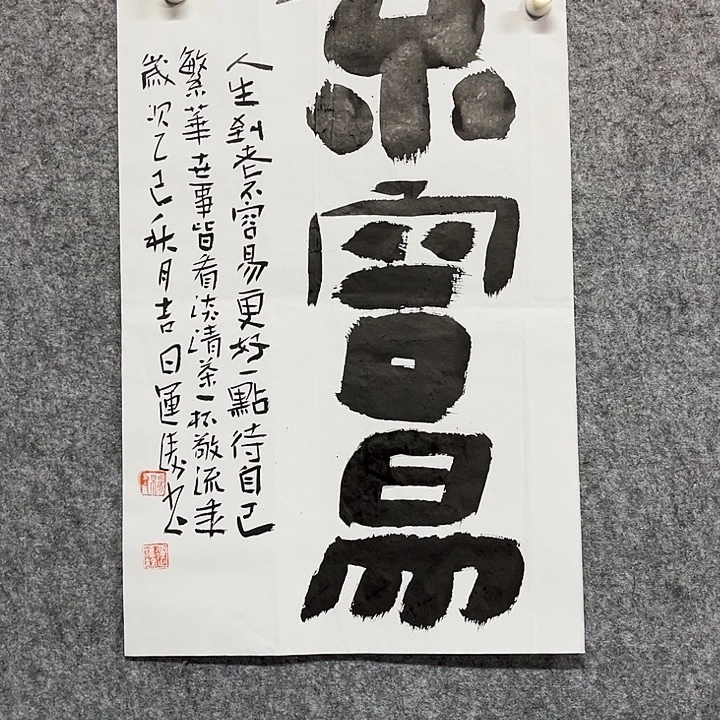 容易
人生到老不容易更好一點待自己
繁華世事皆看淡清茶一杯敬流年
歲次乙巳秋月吉日運书